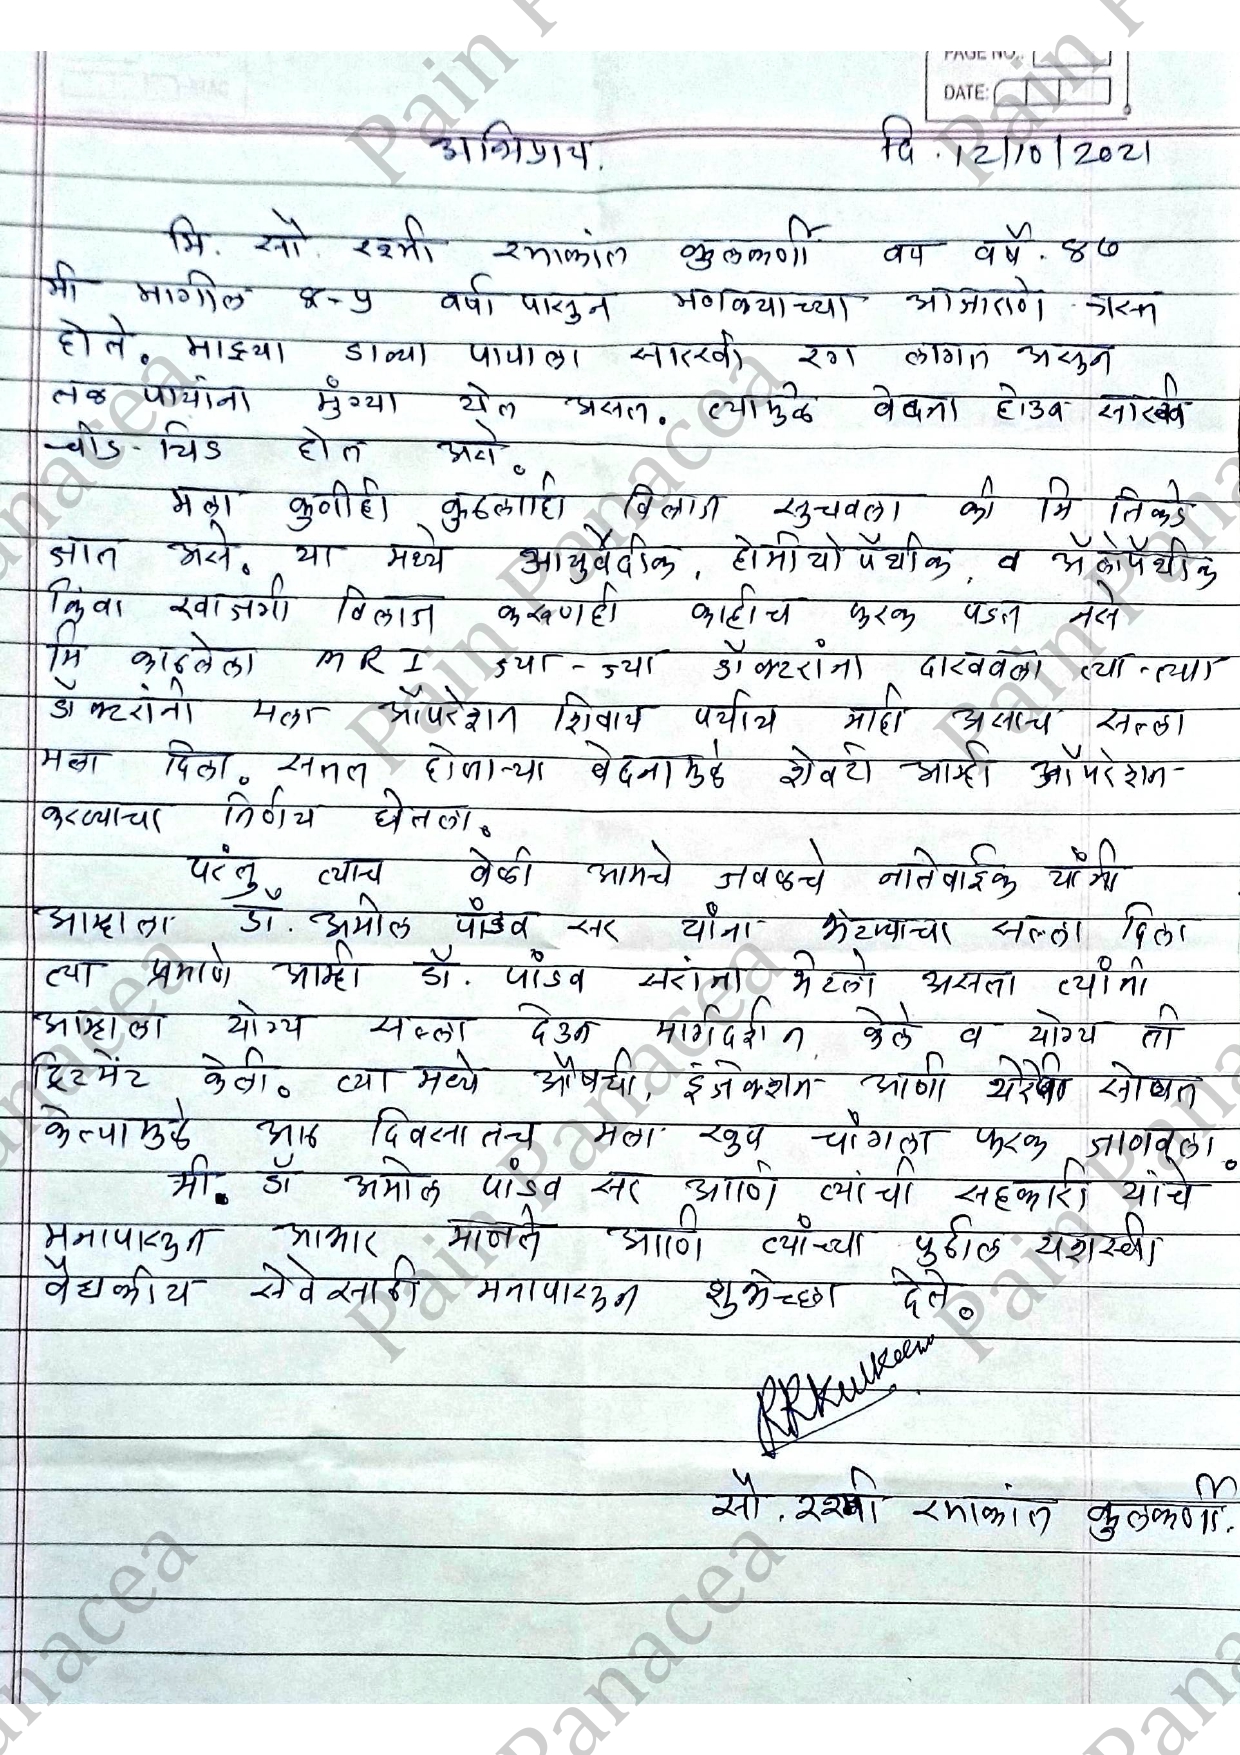 PAGE NO.:
DATE:
अभिप्राय. दि. 12/10/2021
मि. सौ. रश्मी रमाकांत कुलकर्णी वय वर्षे. ४७
मी मागील ४-५ वर्षा पासुन मणक्याच्या आजाराणे त्रस्त
होते. माझ्या डाव्या पायाला सारखी रग लागत असुन
तळ पायांना मुंग्या येत असत. त्यामुळे वेदना होउन सारखी
चीड-चिड होत असे.
मला कुणीही कुठलाही विलाज सुचवला की मि तिकडे
जात असे. या मध्ये आयुर्वेदीक, होमीयोपॅथीक, व ॲलोपॅथीक
किंवा खाजगी विलाज करूणही काहीच फरक पडत नसे
मि काढलेला MRI ज्या-ज्या डॉक्टरांना दाखवला त्या-त्या
डॉक्टरांनी मला ऑपरेशन शिवाय पर्याय नाही असाच सल्ला
मला दिला. सतत होणाऱ्या वेदनामुळे शेवटी आम्ही ऑपरेशन
करण्याचा निर्णय घेतला.
परंतु त्याच वेळी आमचे जवळचे नातेवाईक यांनी
आम्हाला डॉ. अमोल पांडव सर यांना भेटण्याचा सल्ला दिला
त्या प्रमाणे आम्ही डॉ. पांडव सरांना भेटलो असता त्यांनी
आम्हाला योग्य सल्ला देउन मार्गदर्शन केले व योग्य ती
ट्रिटमेंट केली. त्या मध्ये औषधी, इंजेक्शन आणी थेरेपी सोबत
केल्यामुळे आठ दिवसातच मला खुप चांगला फरक जाणवला.
मी. डॉ अमोल पांडव सर आणि त्यांची सहकारी यांचे
मनापासुन आभार मानते आणि त्यांच्या पुढील यशस्वी
वैद्यकीय सेवेसाठी मनापासुन शुभेच्छा देते.
RRKulkarni
सौ. रश्मी रमाकांत कुलकर्णी.
Pain Panacea